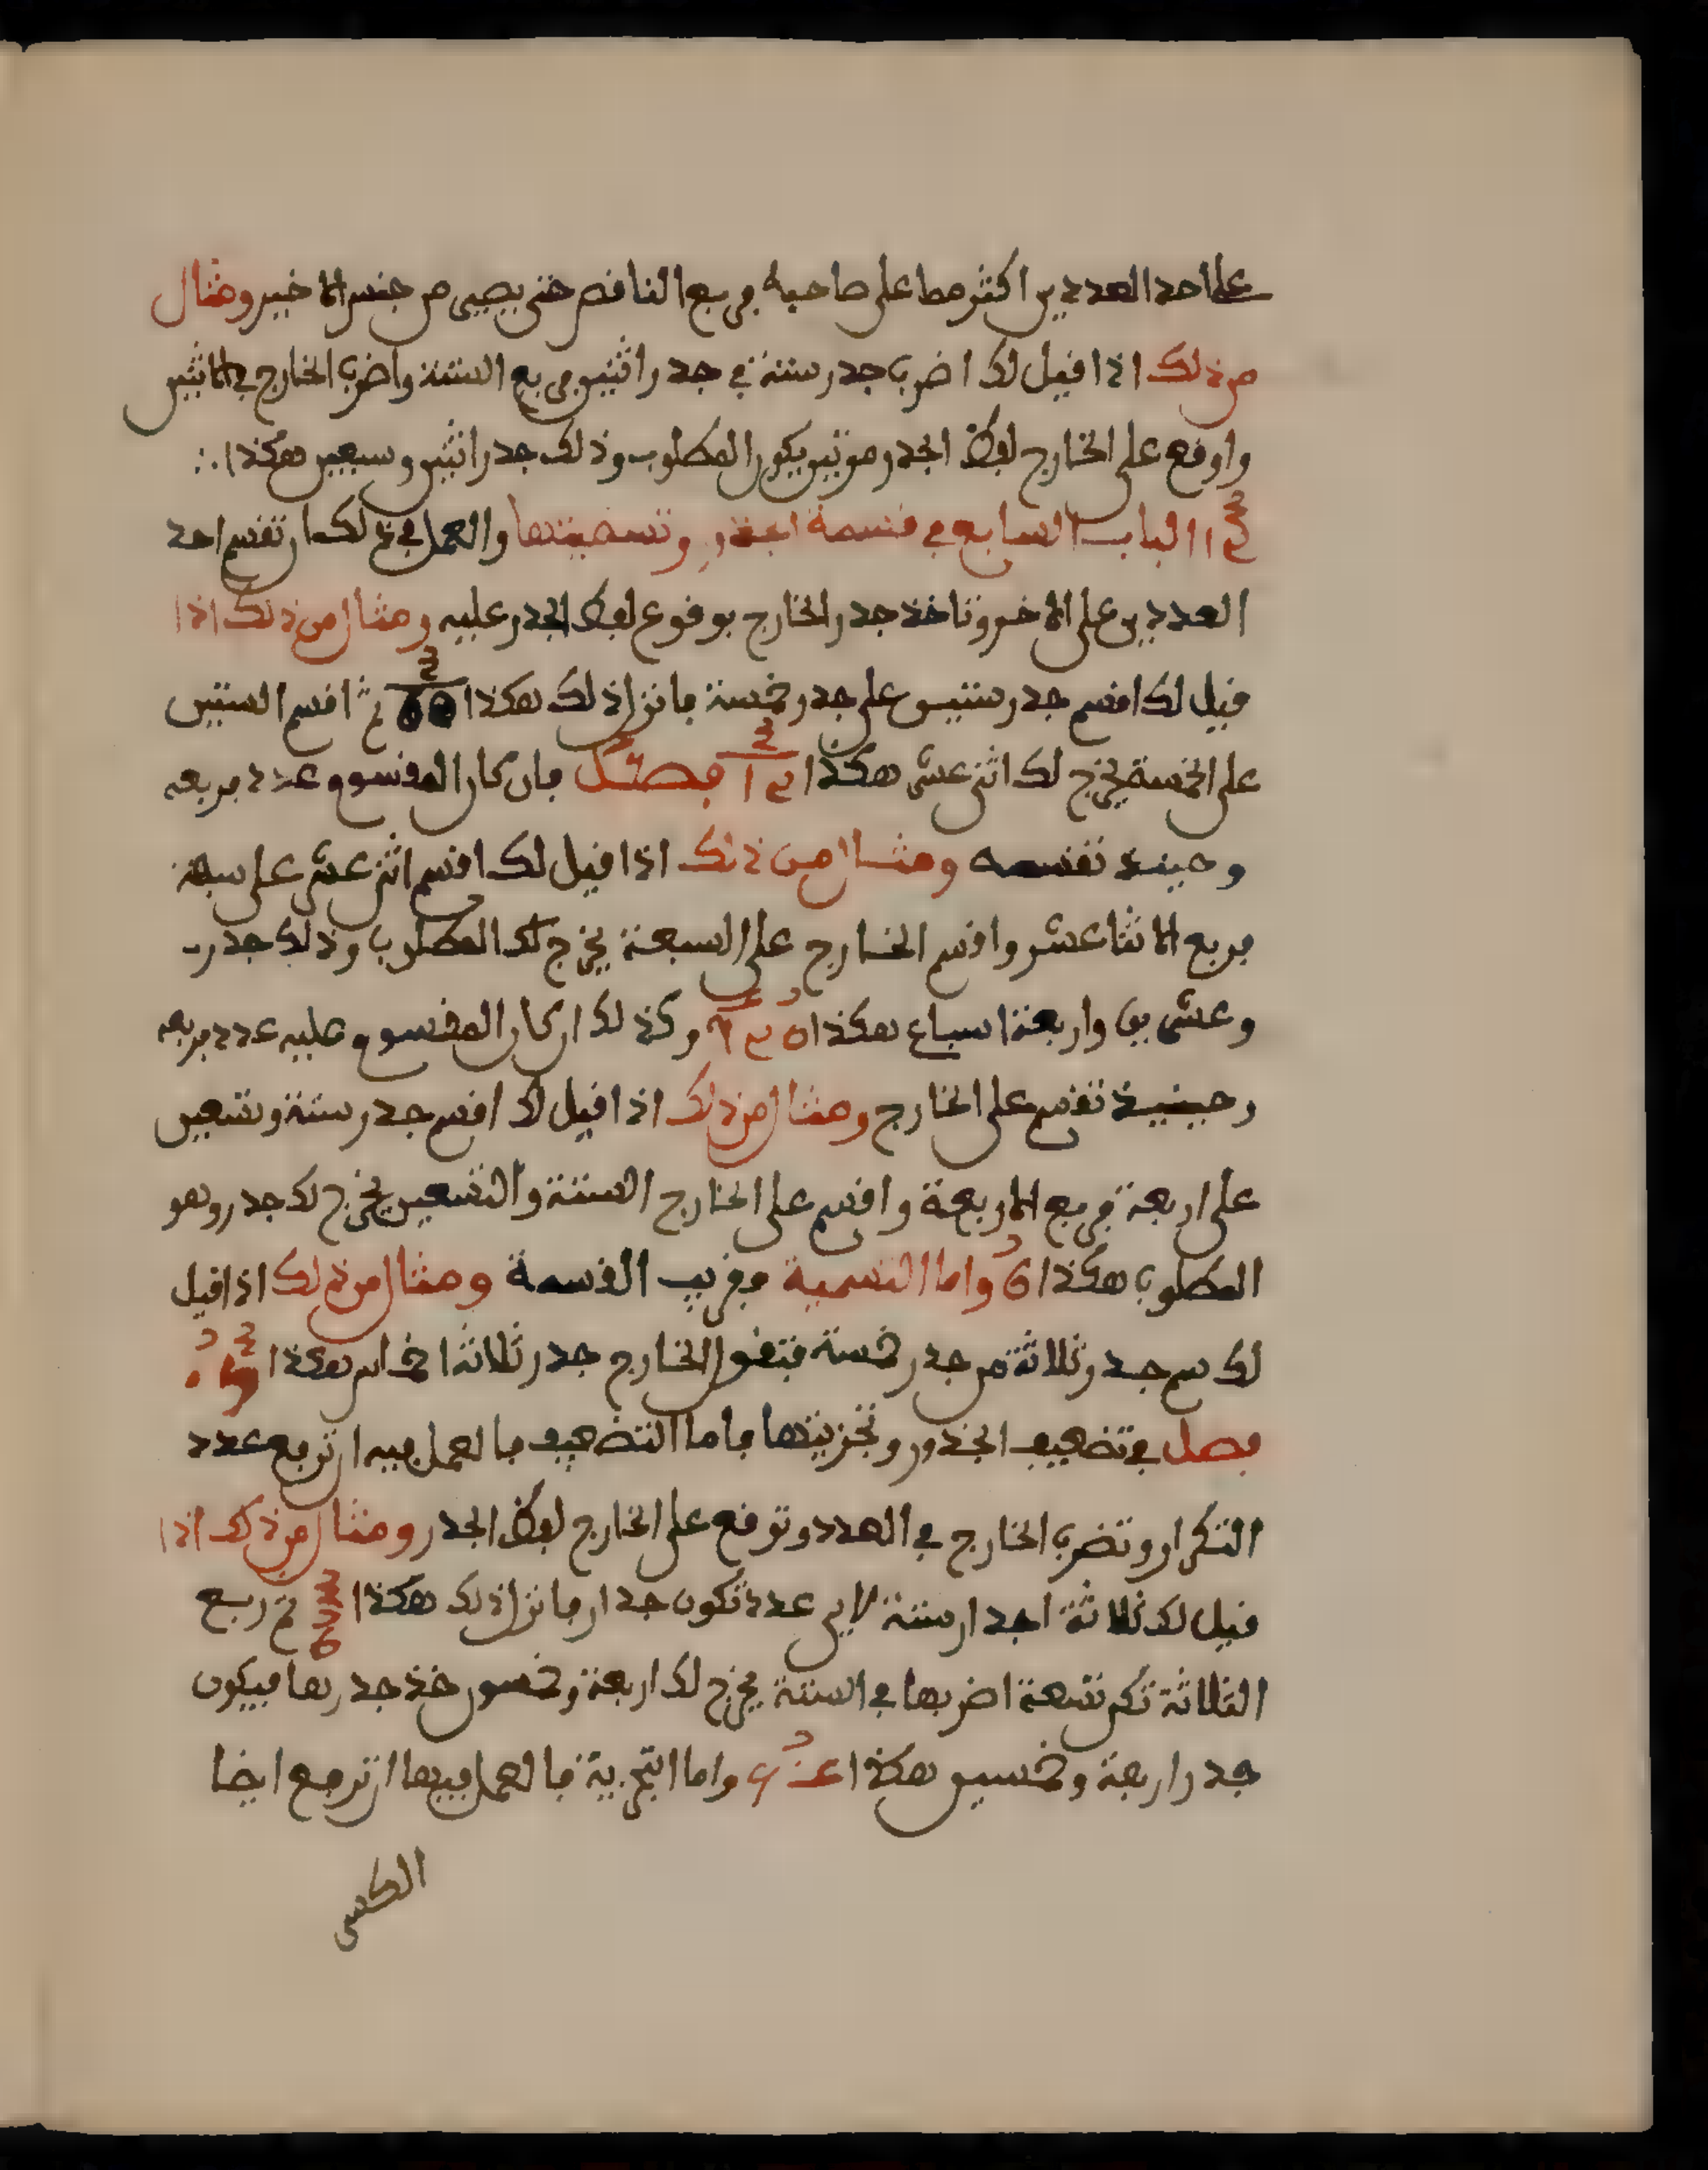 على احد العددين اكثر مما على صاحبه فربع الناقص حتى يصير من جنس الاخير ومثال
من ذلك اذا قيل لك اضرب جدر ستة في جدر اثنين فربع الستة واضرب الخارج في الاثنين
واوقع على الخارج لفظ الجدر مرتين يكون المطلوب وذلك جدر اثنين وسبعين هكذا ∴
الباب السابع في قسمة الجذور وتسميتها والعمل في ذلك ان تقسم احد
العددين على الاخر وتاخذ جدر الخارج بوقوع لفظ الجدر عليه ومثال من ذلك اذا
قيل لك اقسم جدر ستين على جدر خمسة فانزل ذلك هكذا 60 ثم اقسم الستين
على الخمسة يخرج لك اثنى عشر هكذا فصل فان كان المقسوم عدد فربعه
وحينئذ تقسمه ومثال من ذلك اذا قيل لك اقسم اثنى عشر على سبعة
فربع الاثنا عشر واقسم الخارج على السبعة يخرج لك المطلوب وذلك جدر
وعشرين واربعة اسباع هكذا وكذلك ان كان المقسوم عليه عدد فربعه
وحينيذ تقسم على الخارج ومثال من ذلك اذا قيل لك اقسم جدر ستة وتسعين
على اربعة فربع الاربعة واقسم على الخارج الستة والتسعين يخرج لك جدر وهو
المطلوب هكذا 6 واما التسمية فقريب القسمة ومثال من ذلك اذا قيل
لك سم جدر ثلاثة من جدر خمسة فتقول الخارج جدر ثلاثة اخماس هكذا
فصل في تضعيف الجذور وتجزيتها فاما التضعيف فالعمل فيه ان تربع عدد
التكرار وتضرب الخارج في العدد وتوقع على الخارج لفظ الجدر ومثال من ذلك اذا
قيل لك ثلاثة اجدار ستة لاي عدد تكون جدار فانزل ذلك هكذا ثم ربع
الثلاثة تكن تسعة اضربها في الستة يخرج لك اربعة وخمسون خذ جدرها فيكون
جدر اربعة وخمسين هكذا واما التجزية فالعمل فيها ان تربع ايضا
الكسر